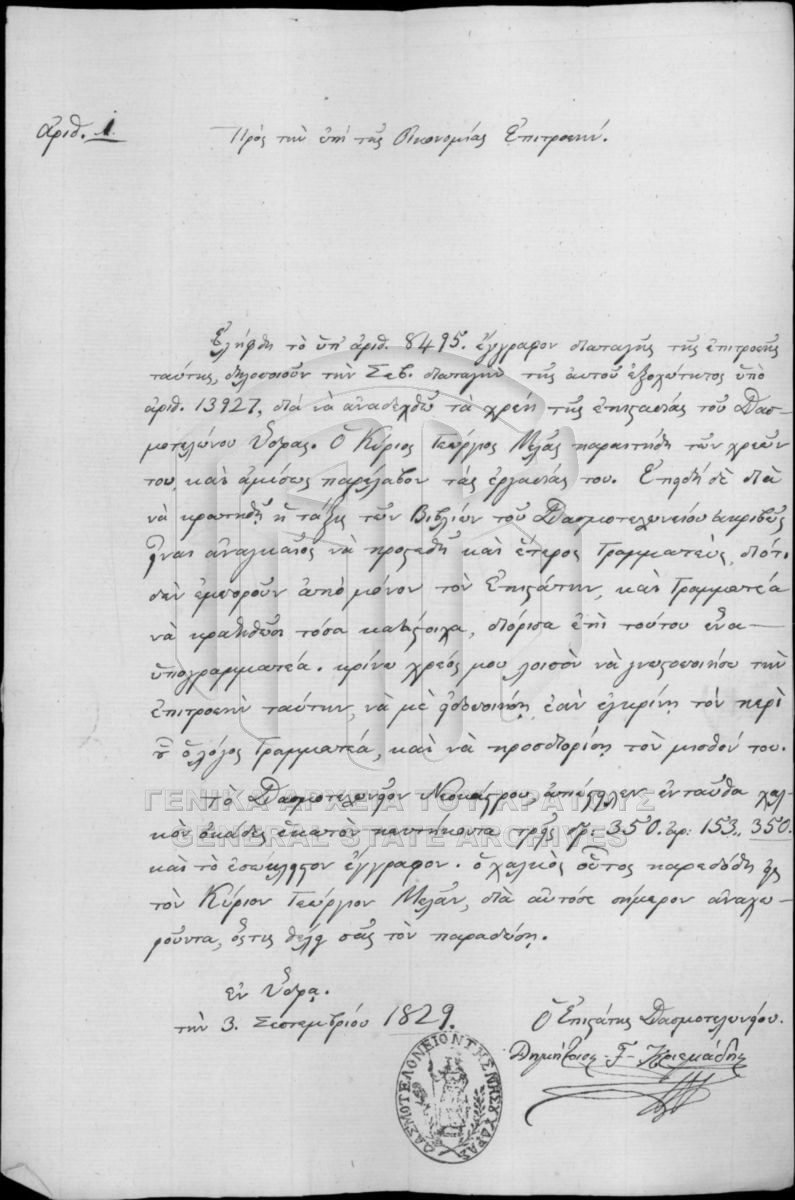 ἀριθ. 1.
Πρὸς τὴν ἐπὶ τῆς Οἰκονομίας Ἐπιτροπήν.
Ἐλήφθη τὸ ὑπ' ἀριθ. 8495. ἔγγραφον διαταγῆς τῆς ἐπιτροπῆς
ταύτης, δηλοποιοῦν τὴν Σεβ. διαταγὴν τῆς αὐτοῦ ἐξοχότητος ὑπὸ
ἀριθ. 13927, διὰ νὰ ἀναδεχθῶ τὰ χρέη τῆς ἐπιστασίας τοῦ Δασ-
μοτελώνου Ὕδρας. Ὁ Κύριος Γεώργιος Μελᾶς παραιτήθη τῶν χρεῶν
του, καὶ ἀμέσως παρέλαβον τὰς ἐργασίας του. Ἐπηδὴ δὲ διὰ
νὰ κρατηθῇ ἡ τάξις τῶν Βιβλίων τοῦ Δασμοτελωνείου ἀκριβῶς
ἦναι ἀναγκαῖος νὰ προςτεθῇ καὶ ἕτερος Γραμματεὺς, διότι
δὲν ἐμποροῦν ἀπὸ μόνον τὸν Ἐπιστάτην, καὶ Γραμματέα
νὰ κρατηθῶσι τόσα κατάστοιχα, διόρισα ἐπὶ τούτου ἕνα
ὑπογραμματέα. κρίνω χρέος μου λοιπὸν νὰ γνωστοποιήσω τὴν
ἐπιτροπὴν ταύτην, νὰ μὲ ὁδηποιήσῃ, ἐὰν ἐγκρίνῃ τὸν περὶ
οὗ ὁ λόγος Γραμματέα, καὶ νὰ προσδιορίσῃ τὸν μισθόν του.
Τὸ Δασμοτελωνεῖον Νεοκάστρου ἀπέστειλεν ἐνταῦθα χαλ-
κὸν ὀκάδες ἑκατὸν πεντήκοντα τρεῖς δρ: 350. ἀρ: 153,, 350.
καὶ τὸ ἐσώκλειστον ἔγγραφον. ὁ χαλκὸς οὗτος παρεδόθη εἰς
τὸν Κύριον Γεώργιον Μελᾶν, διὰ αὐτόσε σήμερον ἀναχω-
ροῦντα, ὅςτις θέλει σᾶς τὸν παραδώσῃ.
ἐν Ὕδρᾳ.
τὴν 3. Σεπτεμβρίου 1829.
Ὁ Ἐπιστάτης Δασμοτελωνείου.
Δημήτριος Γ Κριεμάδης
ΔΑΣΜΟΤΕΛΟΝΕΙΟΝ ΤΗΣ ΝΗΣΟΥ ΥΔΡΑΣ
ΓΕΝΙΚΑ ΑΡΧΕΙΑ ΤΟΥ ΚΡΑΤΟΥΣ
GENERAL STATE ARCHIVES